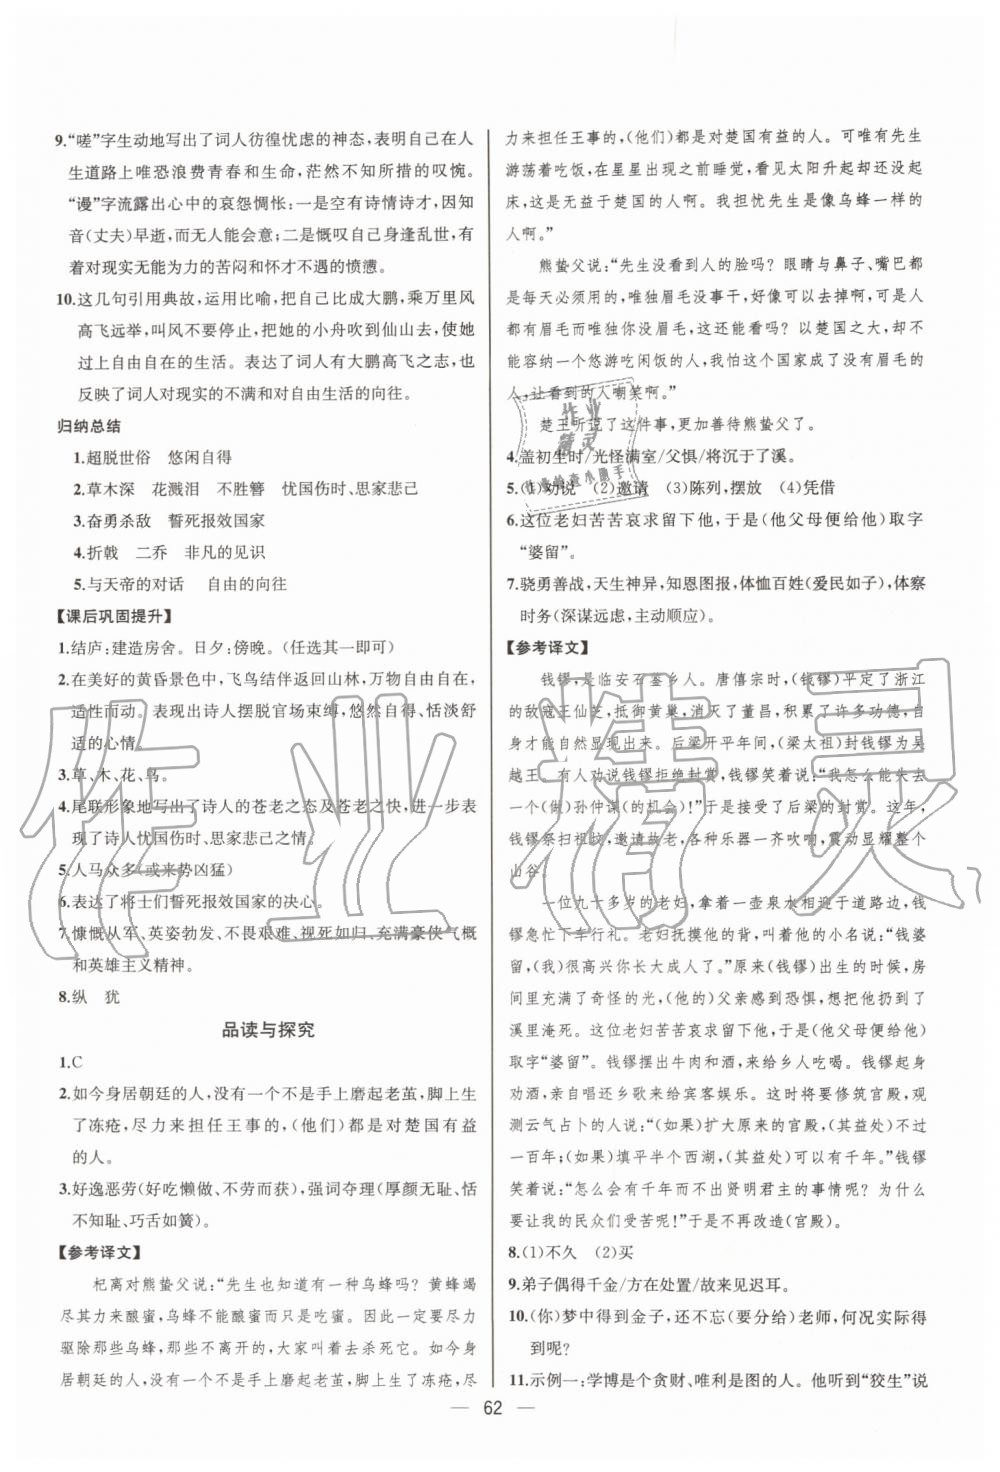 9.“嗟”字生动地写出了词人彷徨忧虑的神态，表明自己在人
生道路上唯恐浪费青春和生命，茫然不知所措的叹惋。
“谩”字流露出心中的哀怨惆怅：一是空有诗情诗才，因知
音(丈夫)早逝，而无人能会意；二是慨叹自己身逢乱世，有
着对现实无能为力的苦闷和怀才不遇的愤懑。
10.这几句引用典故，运用比喻，把自己比成大鹏，乘万里风
高飞远举，叫风不要停止，把她的小舟吹到仙山去，使她
过上自由自在的生活。表达了词人有大鹏高飞之志，也
反映了词人对现实的不满和对自由生活的向往。
归纳总结
1.超脱世俗 悠闲自得
2.草木深 花溅泪 不胜簪 忧国伤时、思家悲己
3.奋勇杀敌 誓死报效国家
4.折戟 二乔 非凡的见识
5.与天帝的对话 自由的向往
【课后巩固提升】
1.结庐：建造房舍。日夕：傍晚。（任选其一即可）
2.在美好的黄昏景色中，飞鸟结伴返回山林，万物自由自在，
适性而动。表现出诗人摆脱官场束缚，悠然自得、恬淡舒
适的心情。
3.草、木、花、鸟。
4.尾联形象地写出了诗人的苍老之态及苍老之快，进一步表
现了诗人忧国伤时、思家悲己之情。
5.人马众多(或来势凶猛)
6.表达了将士们誓死报效国家的决心。
7.慷慨从军、英姿勃发、不畏艰难、视死如归、充满豪侠气概
和英雄主义精神。
8.纵 犹
品读与探究
1.C
2.如今身居朝廷的人，没有一个不是手上磨起老茧，脚上生
了冻疮，尽力来担任王事的，(他们)都是对楚国有益
的人。
3.好逸恶劳(好吃懒做、不劳而获)，强词夺理(厚颜无耻、恬
不知耻、巧舌如簧)。
【参考译文】
杞离对熊蛰父说：“先生也知道有一种乌蜂吗？黄蜂竭
尽其力来酿蜜，乌蜂不能酿蜜而只是吃蜜。因此一定要尽力
驱除那些乌蜂，不离开的，大家叫着去杀死它。如今身
居朝廷的人，没有一个不是手上磨起老茧，脚上生了冻疮，尽
力来担任王事的，(他们)都是对楚国有益的人。可唯有先生
游荡着吃饭，在星星出现之前睡觉，看见太阳升起却没有起
床，这是无益于楚国的人啊。我担忧先生是像乌蜂一样的
人啊。”
熊蛰父说：“先生没看到人的脸吗？眼睛与鼻子、嘴巴都
是每天必须用的，唯独眉毛没事干，好像可以去掉啊，可是人
都有眉毛而唯独你没眉毛，这还能看吗？以楚国之大，却不
能容纳一个悠游吃闲饭的人，我怕这个国家成了没有眉毛的
人，让看到的人嘲笑啊。”
楚王听说了这件事，更加善待熊蛰父了。
4.盖初生时/光怪满室/父惧/将沉于了溪。
5.(1)劝说 (2)邀请 (3)陈列，摆放 (4)凭借
6.这位老妇苦苦哀求留下他，于是(他父母便给他)取字
“婆留”。
7.骁勇善战，天生神异，知恩图报，体恤百姓(爱民如子)，体察
时务(深谋远虑，主动顺应)。
【参考译文】
钱镠，是临安石鉴乡人。唐僖宗时，(钱镠)平定了浙江
的敌寇王仙芝，抵御黄巢，消灭了董昌，积累了许多功德，自
身才能自然显现出来。后梁开平年间，(梁太祖)封钱镠为吴
越王。有人劝说钱镠拒绝封赏，钱镠笑着说：“我怎么能失去
一个(做)孙仲谋(的机会)！”于是接受了后梁的封赏。这年，
钱镠祭扫祖坟，邀请故老，各种乐器一齐吹响，震动显耀整个
山谷。
一位九十多岁的老妇，拿着一壶泉水迎于道路边，钱
镠急忙下车行礼。老妇抚摸他的背，叫着他的小名说：“钱婆
留，(我)很高兴你长大成人了。”原来(钱镠)出生的时候，房
间里充满了奇怪的光，(他的)父亲感到恐惧，想把他扔到了
溪里淹死。这位老妇苦苦哀求留下他，于是(他父母便给他)
取字“婆留”。钱镠摆出牛肉和酒，来给乡人吃喝。钱镠起身
劝酒，亲自唱还乡歌来给宾客娱乐。这时将要修筑宫殿，观
测云气占卜的人说：“(如果)扩大原来的宫殿，(其益处)不过
一百年；(如果)填平半个西湖，(其益处)可以有千年。”钱镠
笑着说：“怎么会有千年而不出贤明君主的事情呢？为什么
要让我的民众们受苦呢！”于是不再改造(宫殿)。
8.(1)不久 (2)买
9.弟子偶得千金/方在处置/故来见迟耳。
10.(你)梦中得到金子，还不忘(要分给)老师，何况实际得
到呢？
11.示例一：学博是个贪财、唯利是图的人。他听到“狡生”说
作业
精灵
作业检查小助手
作业精灵
62